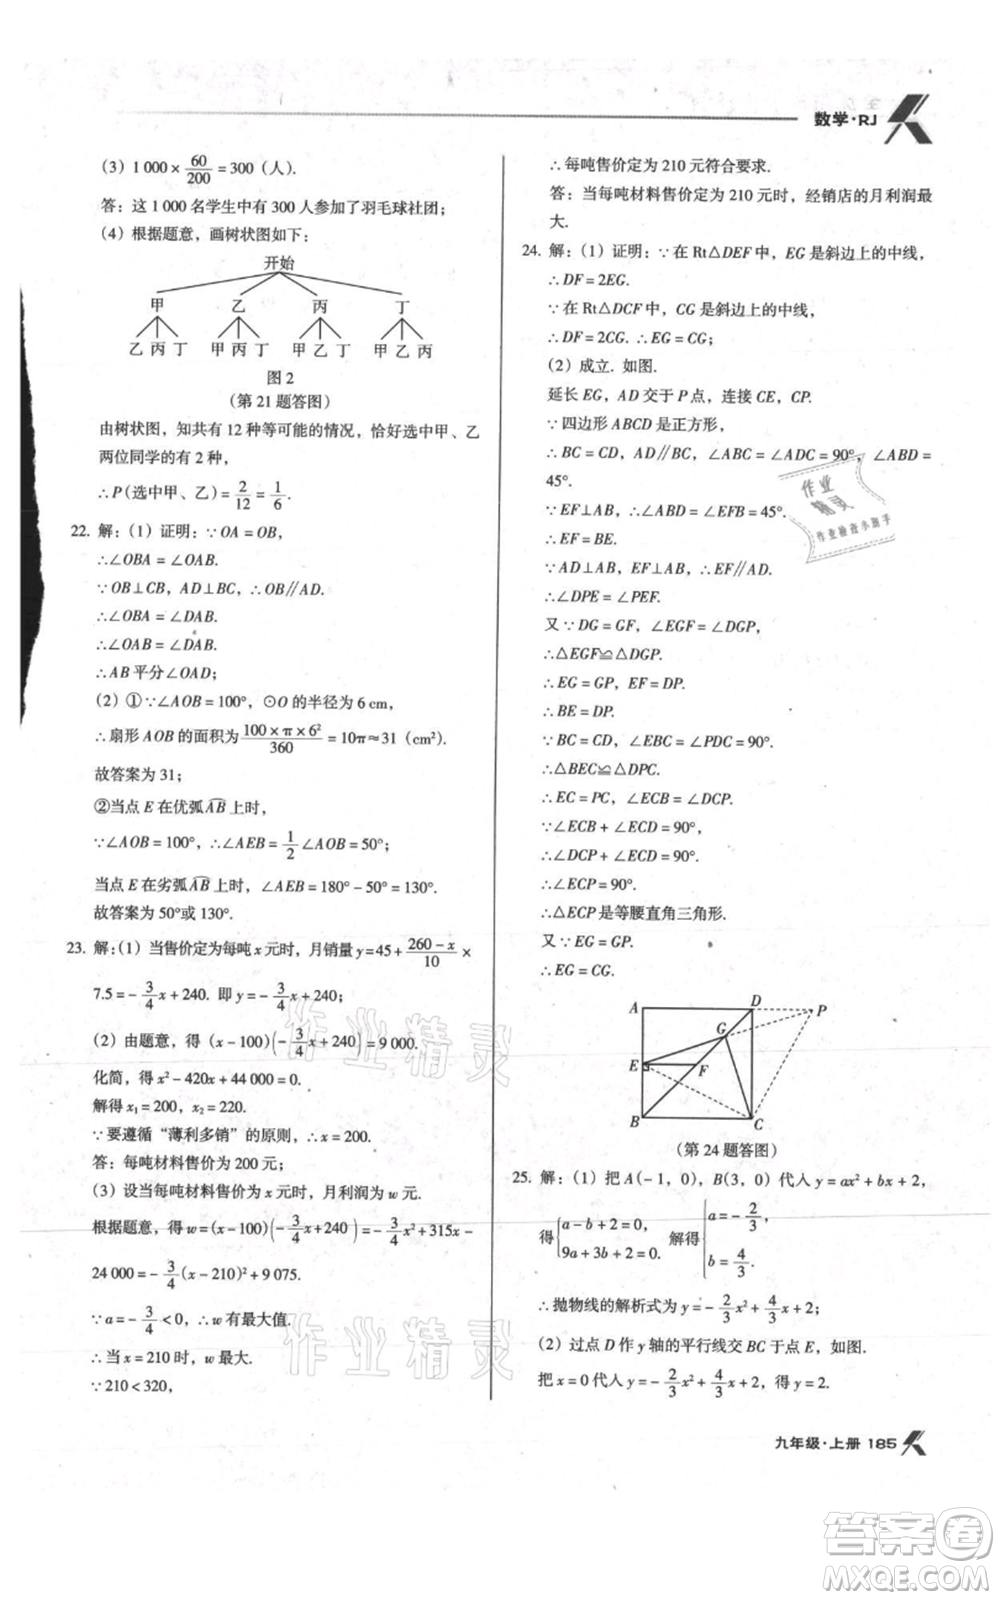 数学·RJ
(3) 1 000 × 60/200 = 300（人）.
答：这 1 000 名学生中有 300 人参加了羽毛球社团；
(4) 根据题意，画树状图如下：
开始
甲 乙 丙 丁
乙 丙 丁 甲 丙 丁 甲 乙 丁 甲 乙 丙
图 2
（第 21 题答图）
由树状图，知共有 12 种等可能的情况，恰好选中甲、乙
两位同学的有 2 种，
∴P（选中甲、乙）= 2/12 = 1/6.
22. 解：(1) 证明：∵OA = OB，
∴∠OBA = ∠OAB.
∵OB⊥CB，AD⊥BC，∴OB∥AD.
∴∠OBA = ∠DAB.
∴∠OAB = ∠DAB.
∴AB 平分∠OAD；
(2) ①∵∠AOB = 100°，⊙O 的半径为 6 cm，
∴扇形 AOB 的面积为 100 × π × 6²/360 = 10π≈31（cm²）.
故答案为 31；
②当点 E 在优弧AB上时，
∵∠AOB = 100°，∴∠AEB = 1/2∠AOB = 50°；
当点 E 在劣弧AB上时，∠AEB = 180° - 50° = 130°.
故答案为 50°或 130°.
23. 解：(1) 当售价定为每吨 x 元时，月销量 y = 45 + 260 - x/10 ×
7.5 = - 3/4 x + 240. 即 y = - 3/4 x + 240；
(2) 由题意，得 (x - 100)(- 3/4 x + 240) = 9 000.
化简，得 x² - 420x + 44 000 = 0.
解得 x₁ = 200，x₂ = 220.
∵要遵循“薄利多销”的原则，∴x = 200.
答：每吨材料售价为 200 元；
(3) 设当每吨材料售价为 x 元时，月利润为 w 元.
根据题意，得 w = (x - 100)(- 3/4 x + 240) = - 3/4 x² + 315x -
24 000 = - 3/4 (x - 210)² + 9 075.
∵a = - 3/4 < 0，∴w 有最大值.
∴当 x = 210 时，w 最大.
∵210 < 320，
∴每吨售价定为 210 元符合要求.
答：当每吨材料售价定为 210 元时，经销店的月利润最
大.
24. 解：(1) 证明：∵在 Rt△DEF 中，EG 是斜边上的中线，
∴DF = 2EG.
∵在 Rt△DCF 中，CG 是斜边上的中线，
∴DF = 2CG. ∴EG = CG；
(2) 成立. 如图.
延长 EG，AD 交于 P 点，连接 CE，CP.
∵四边形 ABCD 是正方形，
∴BC = CD，AD∥BC，∠ABC = ∠ADC = 90°，∠ABD =
45°.
∵EF⊥AB，∴∠ABD = ∠EFB = 45°.
∴EF = BE.
∵AD⊥AB，EF⊥AB，∴EF∥AD.
∴∠DPE = ∠PEF.
又∵DG = GF，∠EGF = ∠DGP，
∴△EGF≌△DGP.
∴EG = GP，EF = DP.
∴BE = DP.
∵BC = CD，∠EBC = ∠PDC = 90°，
∴△BEC≌△DPC.
∴EC = PC，∠ECB = ∠DCP.
∵∠ECB + ∠ECD = 90°，
∴∠DCP + ∠ECD = 90°.
∴∠ECP = 90°.
∴△ECP 是等腰直角三角形.
又∵EG = GP.
∴EG = CG.
A D P
G
E F
B C
（第 24 题答图）
25. 解：(1) 把 A(- 1，0)，B(3，0) 代人 y = ax² + bx + 2，
得{a - b + 2 = 0， 9a + 3b + 2 = 0. 解得{a = - 2/3， b = 4/3.
∴抛物线的解析式为 y = - 2/3 x² + 4/3 x + 2；
(2) 过点 D 作 y 轴的平行线交 BC 于点 E，如图.
把 x = 0 代人 y = - 2/3 x² + 4/3 x + 2，得 y = 2.
九年级·上册 185
作业
精灵
作业检查小助手
作业精灵
作业精灵
答案卷
MXQE.COM